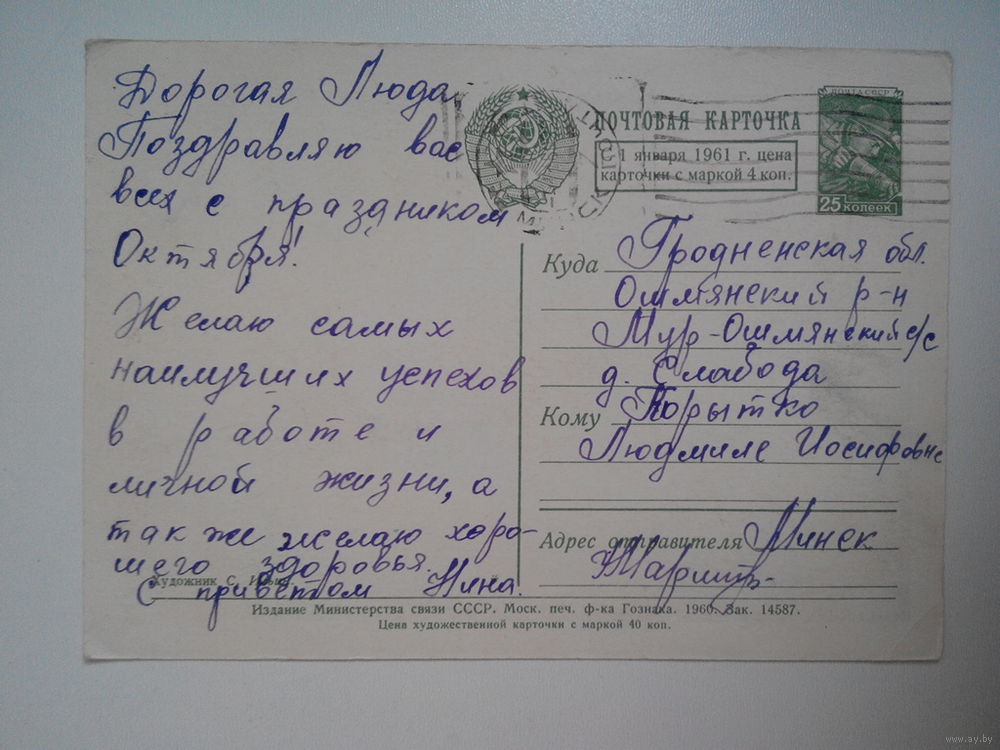 Дорогая Люда
Поздравляю вас
всех с праздником
Октября!
Желаю самых
наилучших успехов
в работе и
личной жизни, а
так же желаю хоро-
шего здоровья.
С приветом Нина.
Художник С.
ПОЧТОВАЯ КАРТОЧКА
С 1 января 1961 г. цена
карточки с маркой 4 коп.
ПОЧТА СССР
25 КОПЕЕК
Куда Гродненская обл.
Ошмянский р-н
Мур-Ошмянский с/с
д. Слабода
Кому Корытко
Людмиле Иосифовне
Адрес отправителя Минск
Издание Министерства связи СССР. Моск. печ. ф-ка Гознака. 1960. Зак. 14587.
Цена художественной карточки с маркой 40 коп.
www.ay.by